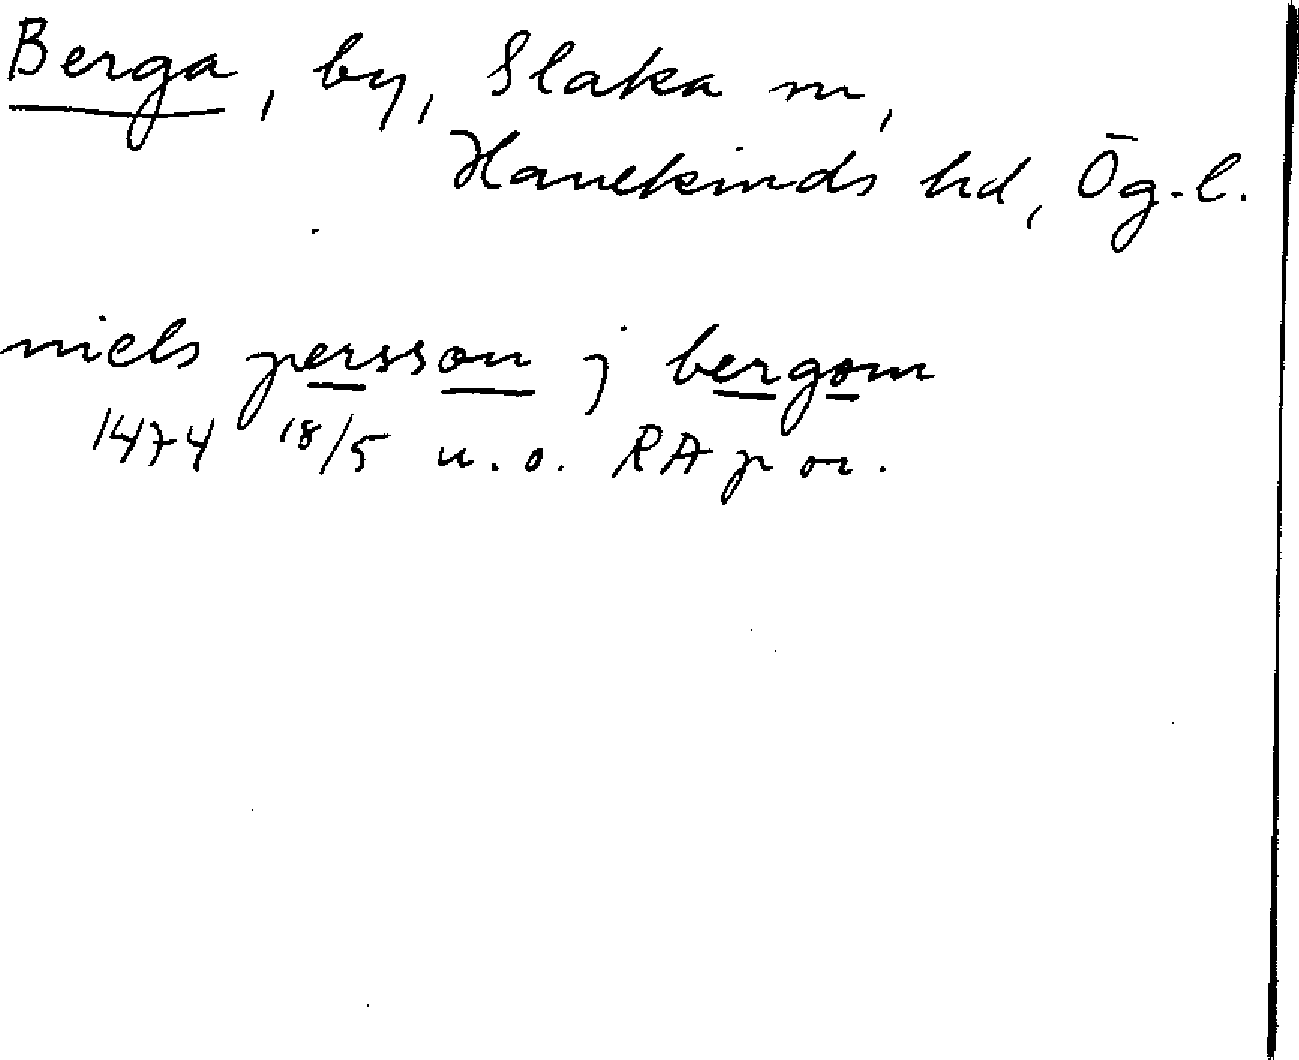 Berga, by, Slaka sn,
Hanekinds hd, Ög. l.
niels persson j bergom
1474 18/5 u. o. RA p or.